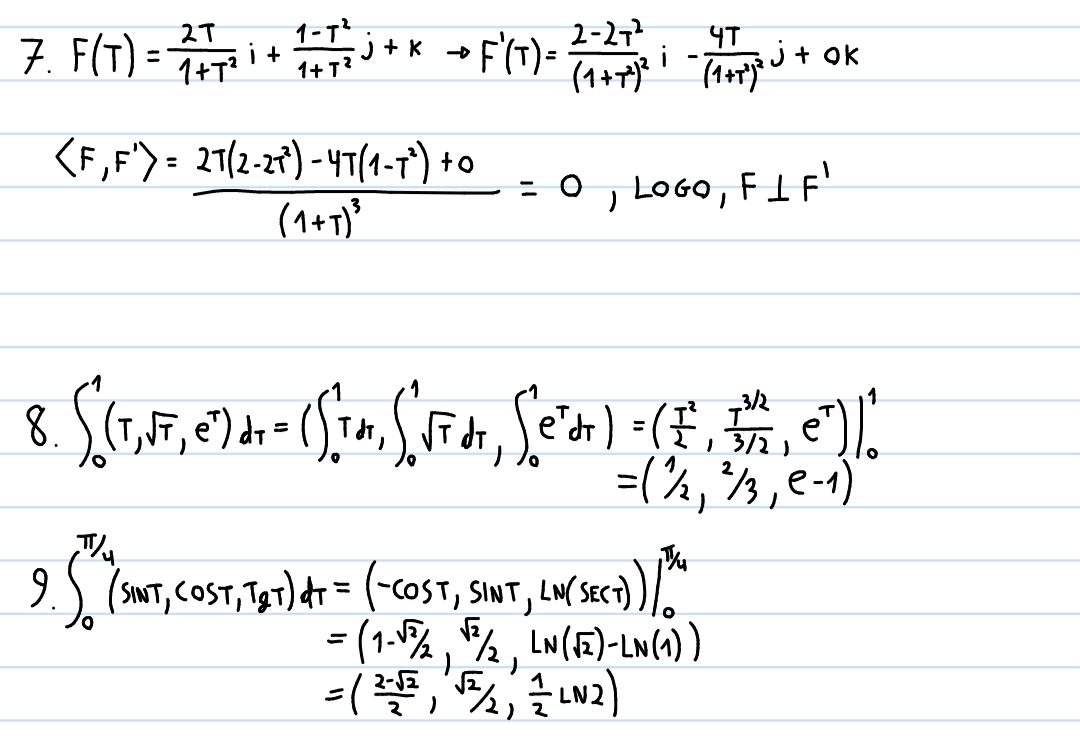 7. F(T) = 2T/(1+T²) i + (1-T²)/(1+T²) j + K → F'(T) = (2-2T²)/(1+T²)² i - 4T/(1+T²)² j + 0K
⟨F,F'⟩ = (2T(2-2T²) - 4T(1-T²) + 0)/(1+T)³ = 0, LOGO, F ⊥ F'
8. ∫₀¹ (T, √T, e^T) dT = (∫₀¹ T dT, ∫₀¹ √T dT, ∫₀¹ e^T dT) = (T²/2, T^(3/2)/(3/2), e^T)|₀¹
= (1/2, 2/3, e-1)
9. ∫₀^(π/4) (SINT, COST, TgT) dT = (-COST, SINT, LN(SECT))|₀^(π/4)
= (1-√2/2, √2/2, LN(√2)-LN(1))
= ((2-√2)/2, √2/2, 1/2 LN2)